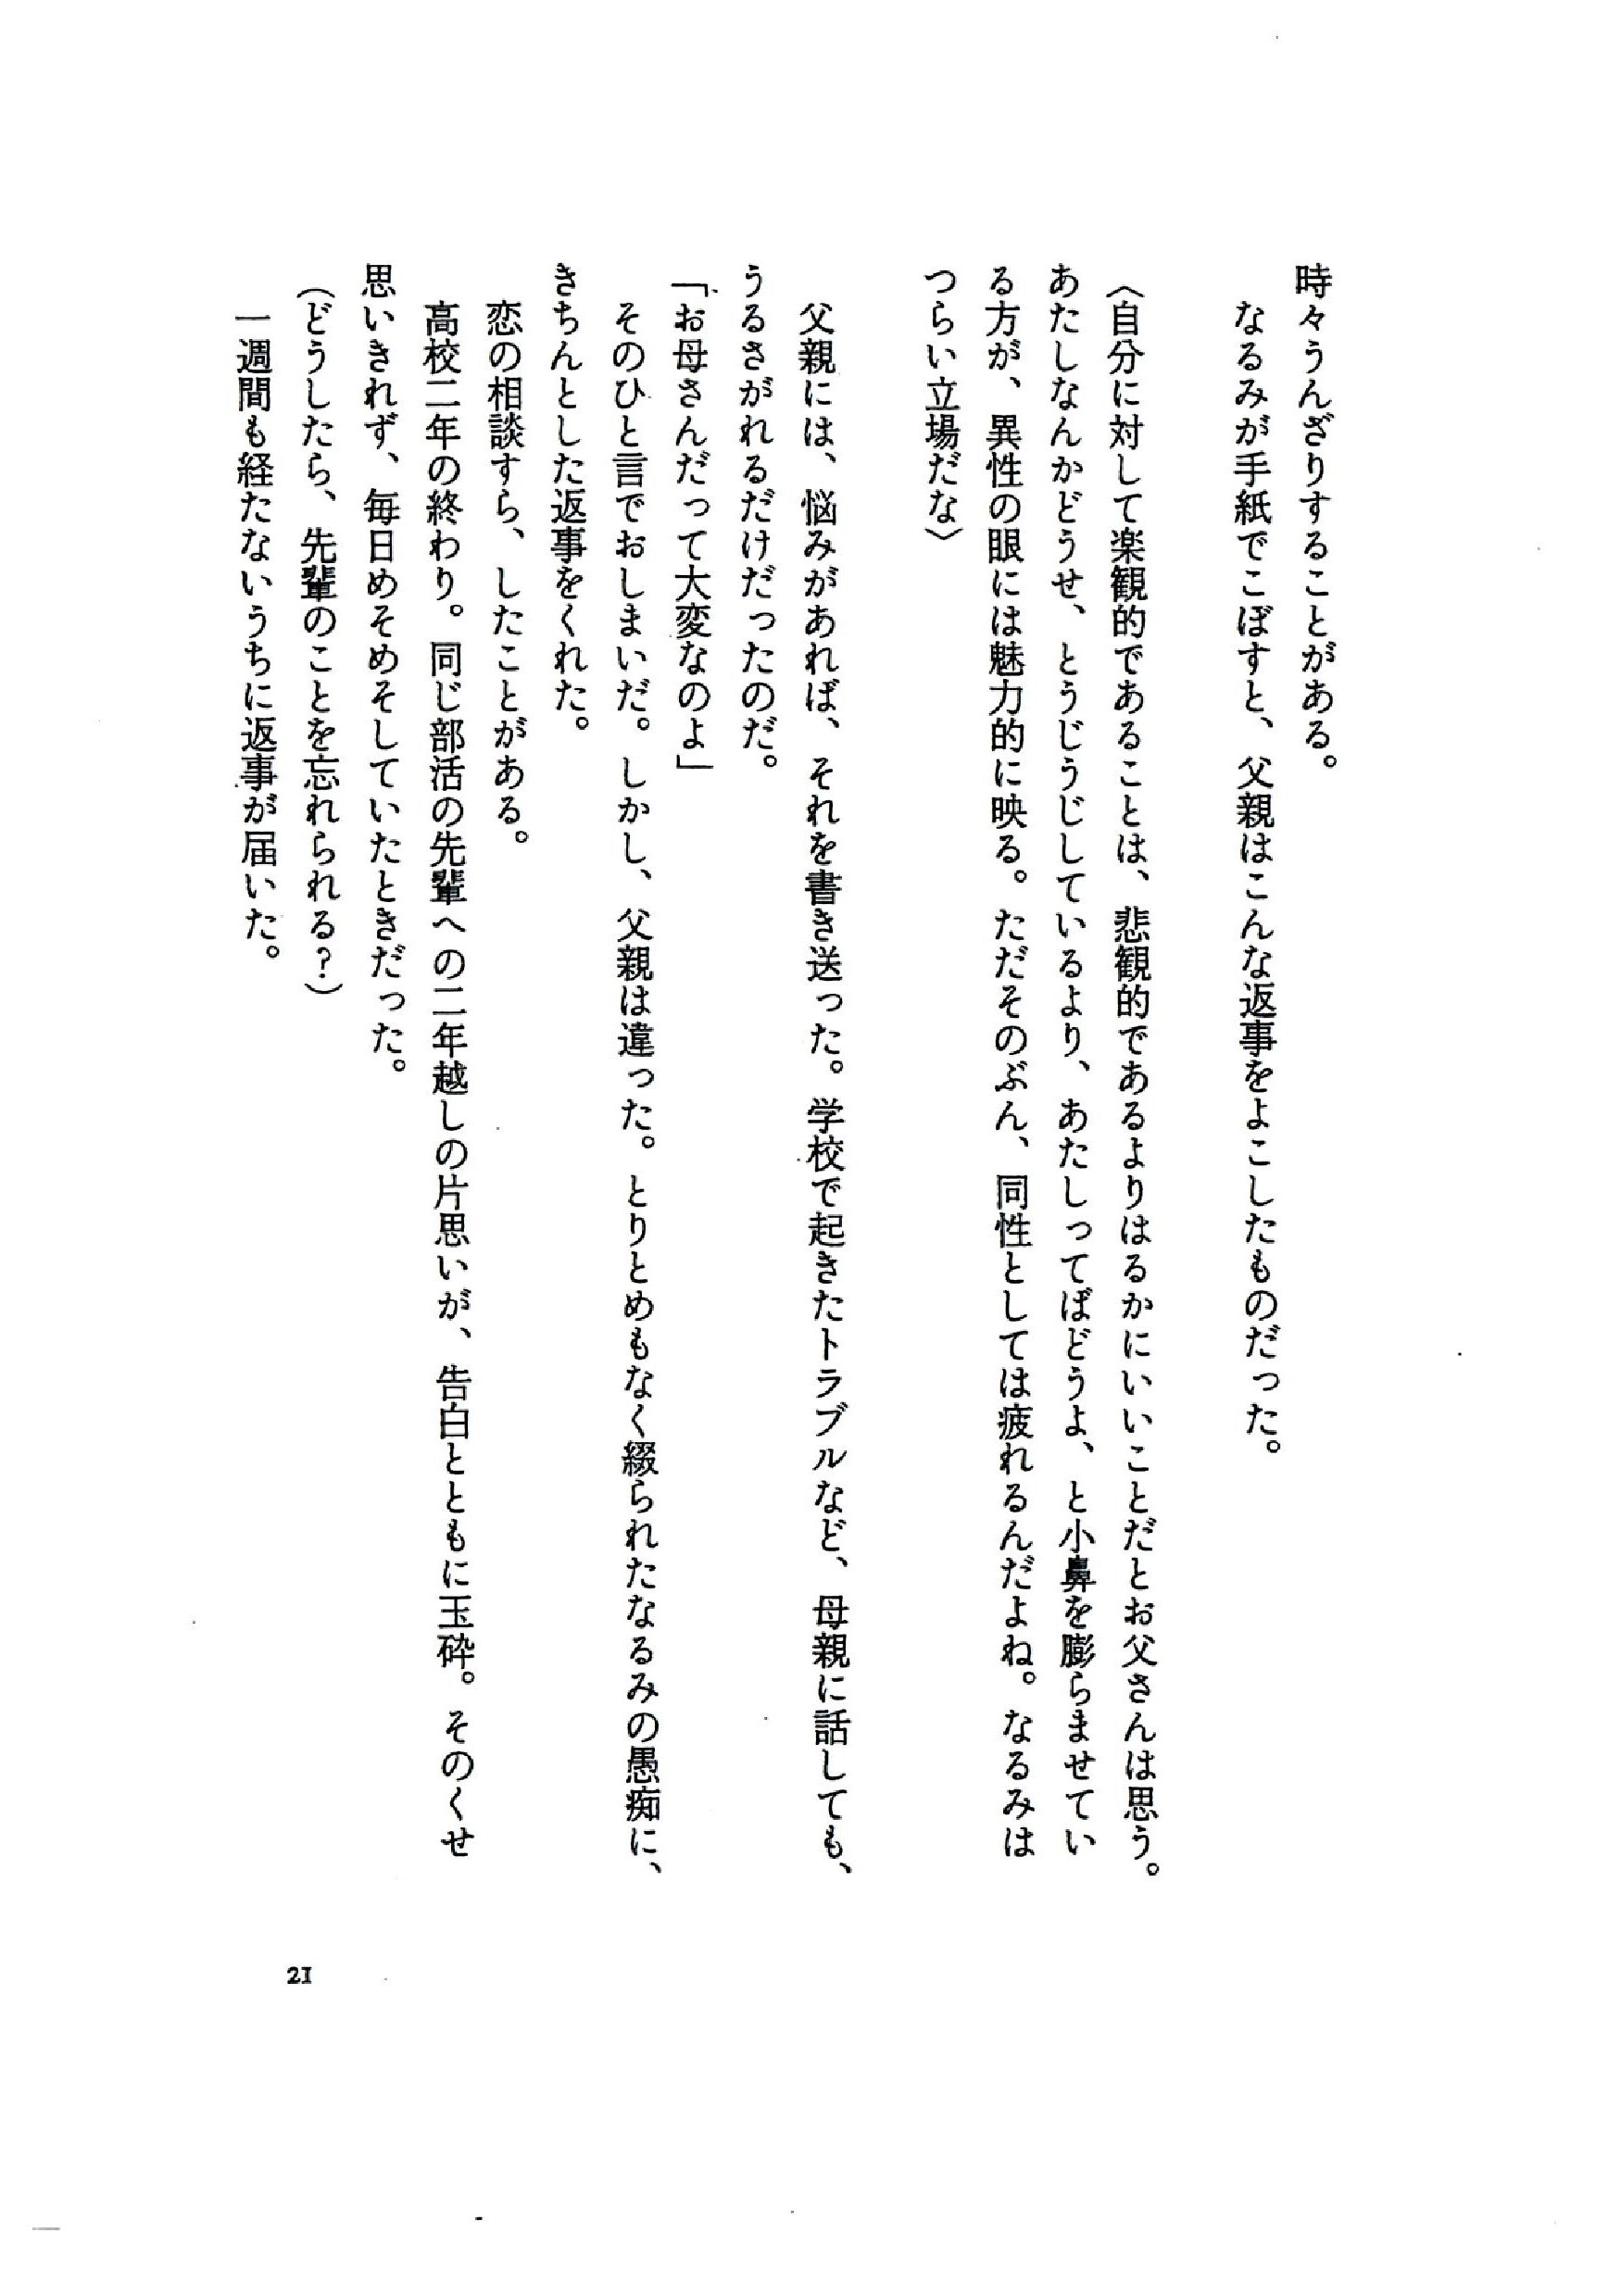 時々うんざりすることがある。
なるみが手紙でこぼすと、父親はこんな返事をよこしたものだった。
〈自分に対して楽観的であることは、悲観的であるよりはるかにいいことだとお父さんは思う。
あたしなんかどうせ、とうじうじしているより、あたしってばどうよ、と小鼻を膨らませてい
る方が、異性の眼には魅力的に映る。ただそのぶん、同性としては疲れるんだよね。なるみは
つらい立場だな〉
父親には、悩みがあれば、それを書き送った。学校で起きたトラブルなど、母親に話しても、
うるさがれるだけだったのだ。
「お母さんだって大変なのよ」
そのひと言でおしまいだ。しかし、父親は違った。とりとめもなく綴られたなるみの愚痴に、
きちんとした返事をくれた。
恋の相談すら、したことがある。
高校二年の終わり。同じ部活の先輩への二年越しの片思いが、告白とともに玉砕。そのくせ
思いきれず、毎日めそめそしていたときだった。
（どうしたら、先輩のことを忘れられる？）
一週間も経たないうちに返事が届いた。
21